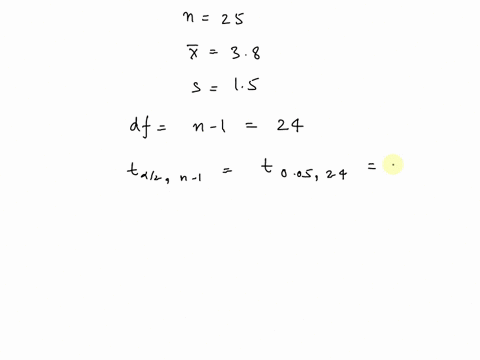 n = 25
x̄ = 3.8
s = 1.5
df = n-1 = 24
t α/2, n-1 = t 0.05, 24 =